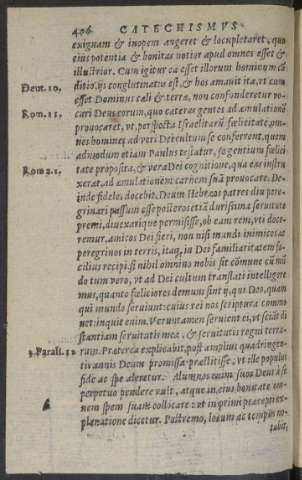 406 CATECHISMVS
exiguam & inopem augeret & locupletaret, quo
eius potentia & bonitas notior apud omnes esset &
illustrior. Cum igitur ea esset illorum hominum cõ
Deut. 10, ditio, ijs conglutinatus est, & hos amauit ita, vt cum
esset Dominus cæli & terræ, non confunderetur vo-
Rom. 11, cari Deus eorum, quo cæteras gentes ad æmulationẽ
prouocaret, vt perspecta Israelitarũ fœlicitate, omnes
homines ad veri Dei cultum se conferrent, quem
admodum etiam Paulus testatur, se gentium fœlici
Rom 2.1, tate proposita, & vera Dei cognitione, qua eas instru
xerat, ad æmulationem carnem suã prouocare. De-
inde fideles docebit, Deum Hebræos patres diu pere
grinari passum esse posteros etiã durissima seruitute
premi, diuexarique permisisse, ob eam rem, vt doce-
remur, amicos Dei fieri, non nisi mundi inimicos, ac
peregrinos in terris, itaq, in Dei familiaritatem fa-
cilius recipi, si nihil omnino nobis sit cõmune cũ mũ
do tum vero, vt ad Dei cultum translati intelligere
mus, quanto fœliciores demum sint ij, qui Deo, quam
qui mundo seruiunt: cuius rei nos scriptura commo
net: inquit enim. Veruntamen seruient ei, vt sciãt di
stantiam seruitutis meæ, & seruitutis regni terra-
3. Parali. 12 rum. Præterea explicabit, post amplius quadringen-
tis annis Deum promissa præstitisse, vt ille populus
fide ac spe aleretur. Alumnos enim suos Deus à se
perpetuo pendere vult, atque in eius bonitate om-
nem spem suam collocare: vt in primi præcepti ex-
planatione dicetur. Postremo, locum ac tempus no-
tabit,